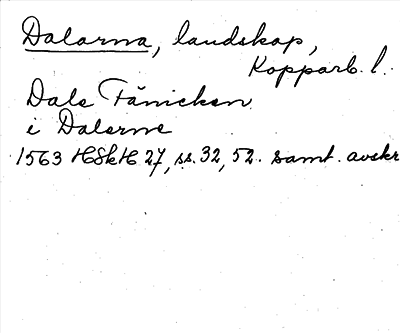 Dalarna, landskap,
Kopparb. l.
Dale Fänicken
i Dalerne
1563 HSkH 27, ss. 32, 52. samt. avskr